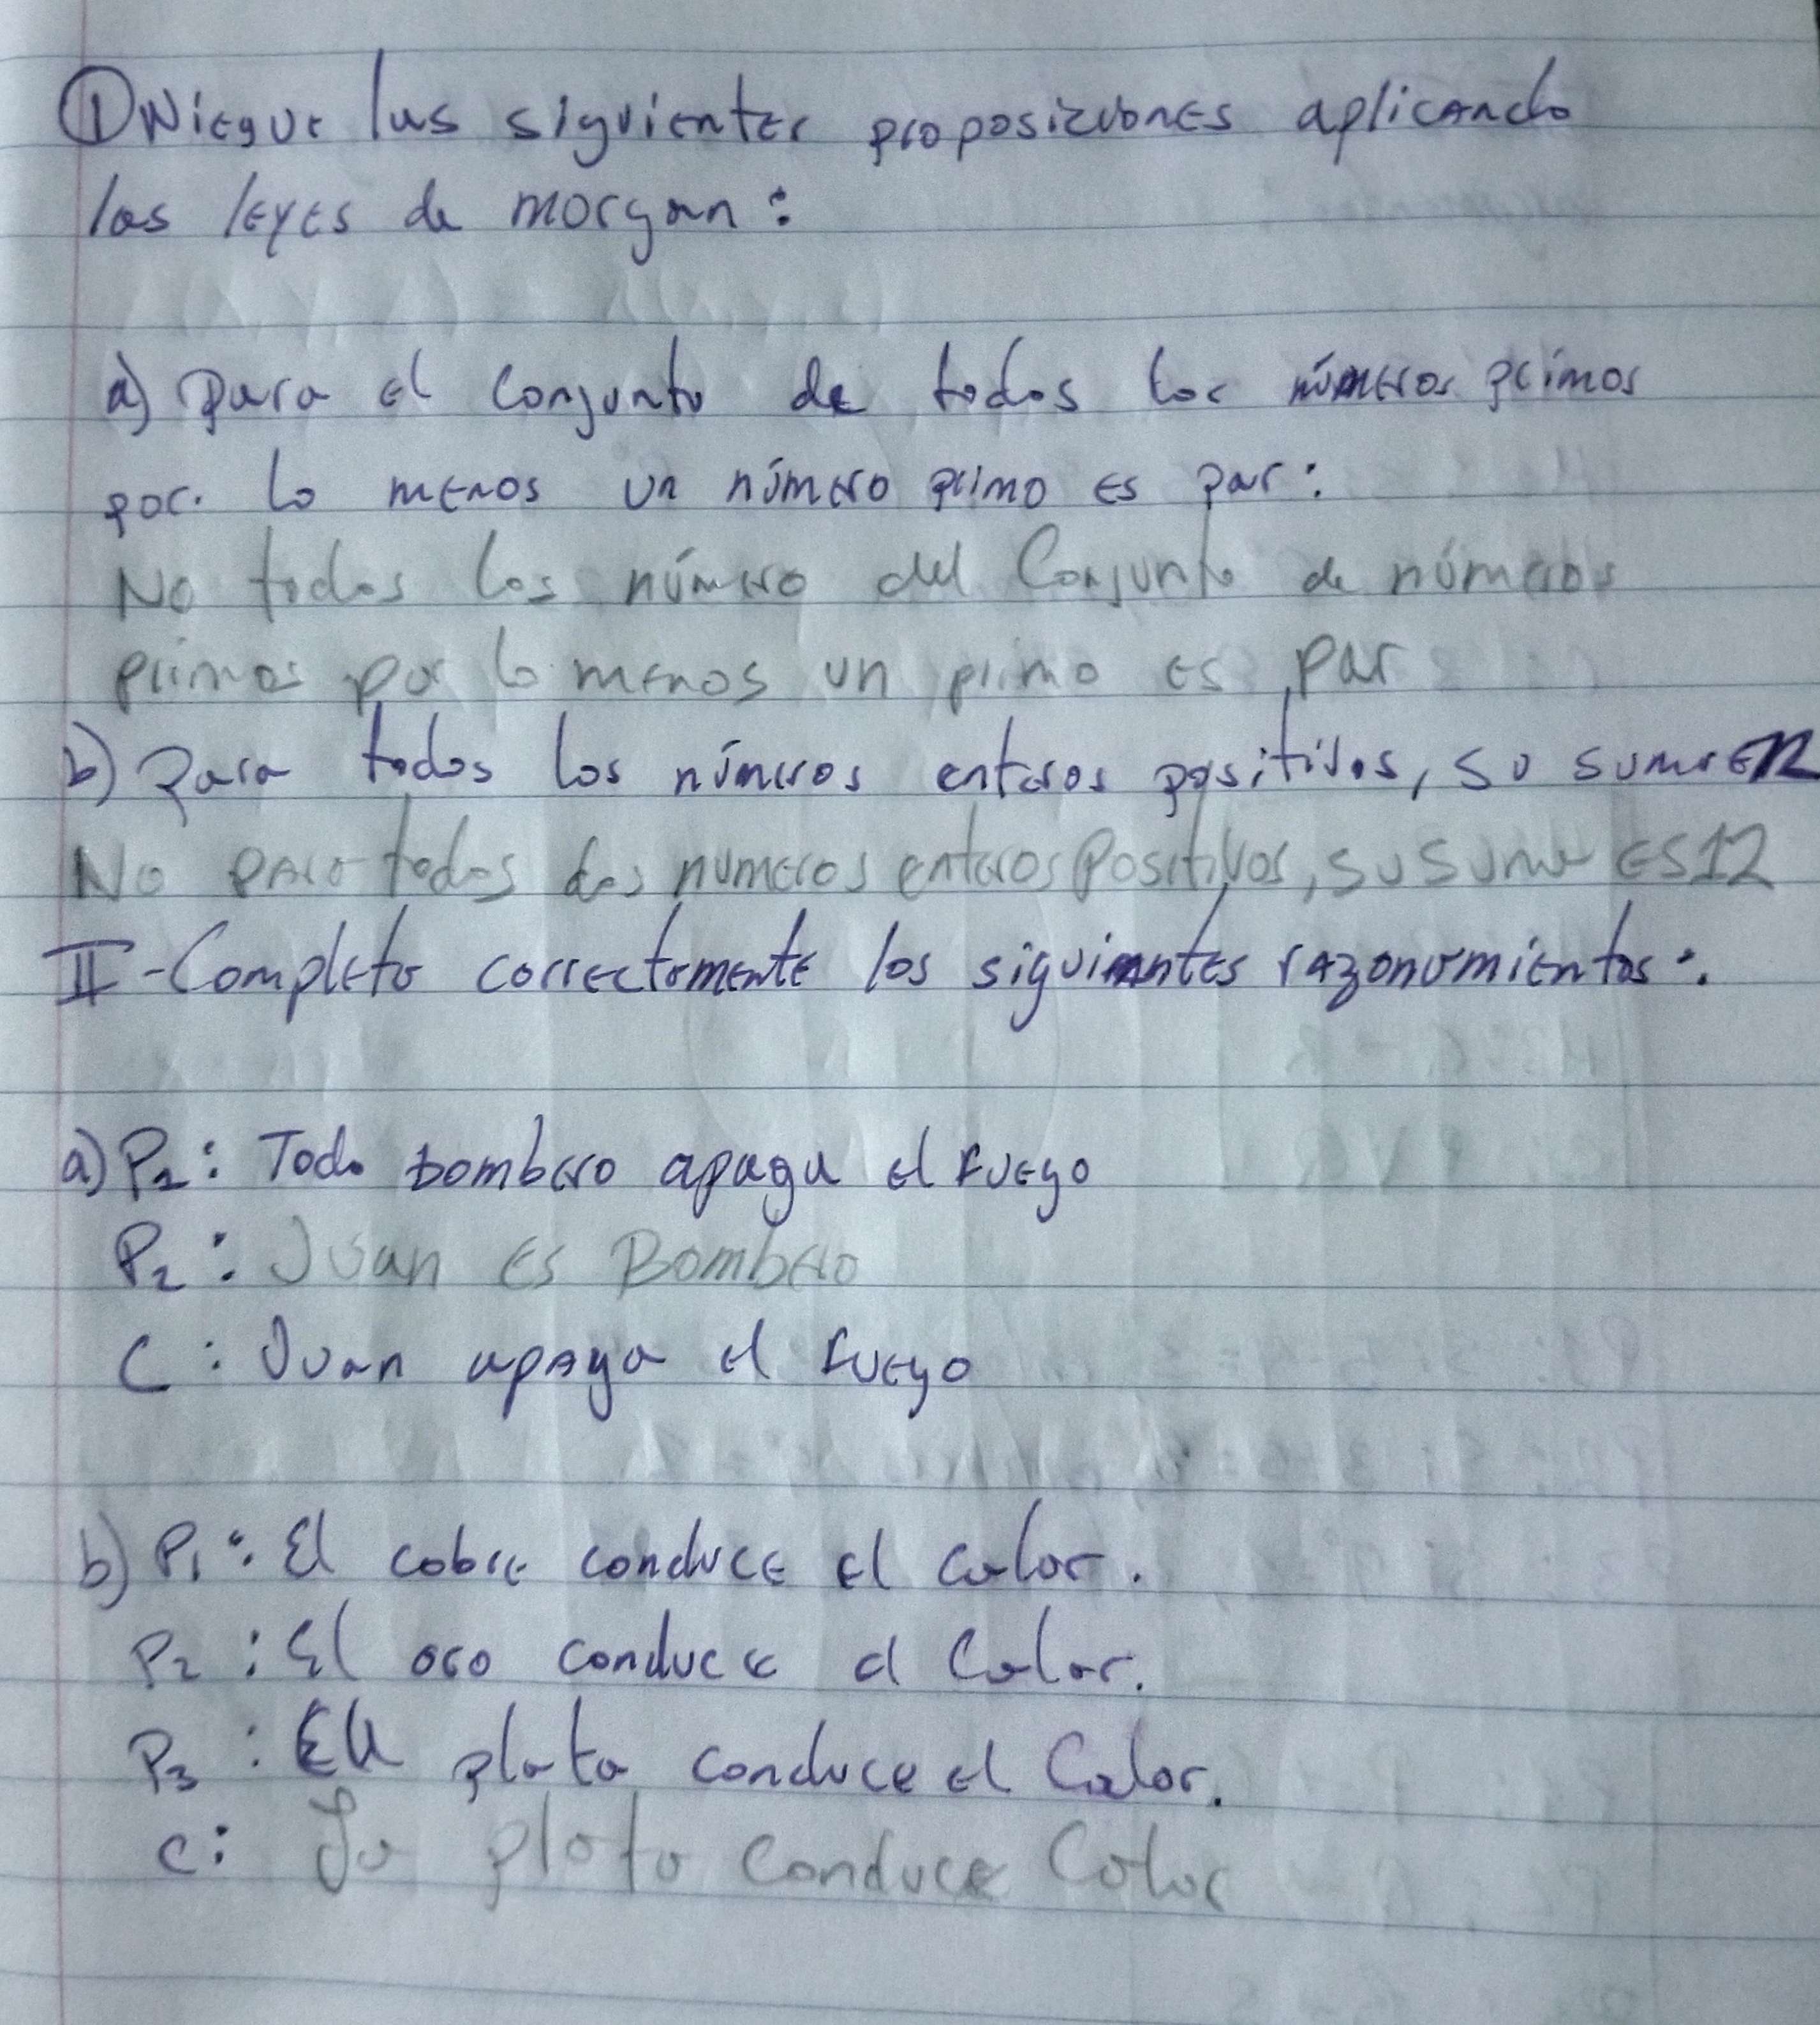 ① Niegue las siguientes proposiciones aplicando
las leyes de morgan:
a) Para el conjunto de todos los números primos
por lo menos un número primo es par:
No todos los número del Conjunto de números
primos por lo menos un primo es par
b) Para todos los números enteros positivos, su suma es 12
No para todos los numeros enteros Positivos, su suma es 12
II - Completa correctamente los siguientes razonamientos:
a) P1: Todo bombero apaga el fuego
P2: Juan es Bombero
C: Juan apaga el fuego
b) P1: El cobre conduce el calor.
P2: El oro conduce el Calor.
P3: La plata conduce el Calor.
C: La plata conduce Calor